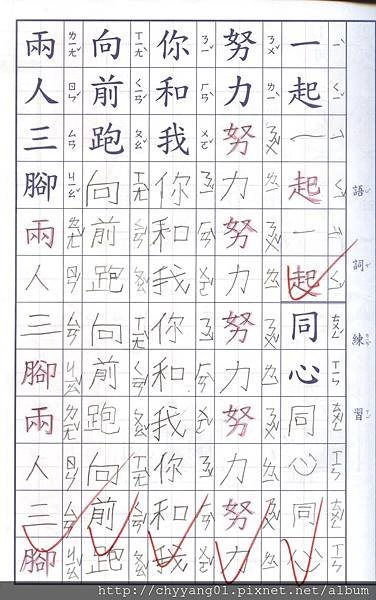 語詞練習
一起一起一起同心同心同心
努力努力努力努力努力努力
你和我你和我你和我你和我
向前跑向前跑向前跑向前跑
兩人三腳兩人三腳兩人三腳
http://chyyang01.pixnet.net/album